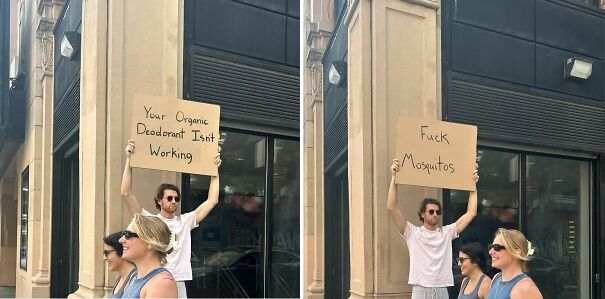 Your Organic
Deodorant Isn't
Working
Fuck
Mosquitos